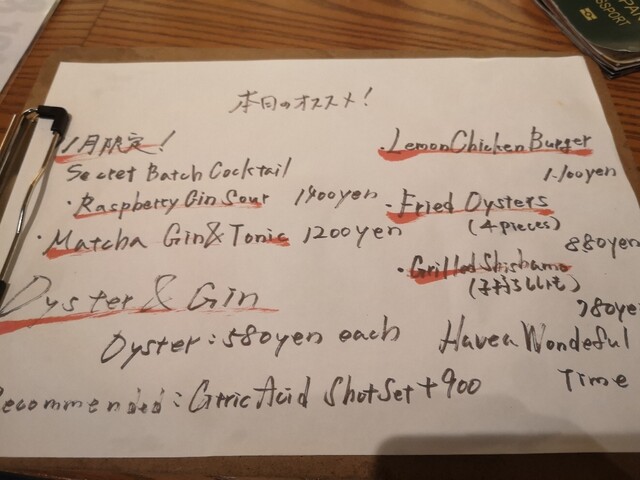 本日のオススメ!
1月限定!
Secret Batch Cocktail
・Raspberry Gin Sour 1400yen
・Matcha Gin&Tonic 1200yen
Oyster & Gin
Oyster:580yen each
Recommended:Citric Acid Shot Set +900
・Lemon Chicken Burger
1,100yen
・Fried Oysters
(4pieces)
880yen
・Grilled Shishamo
(子持ちししゃも)
780ye
Have a Wondeful
Time
PASSPORT